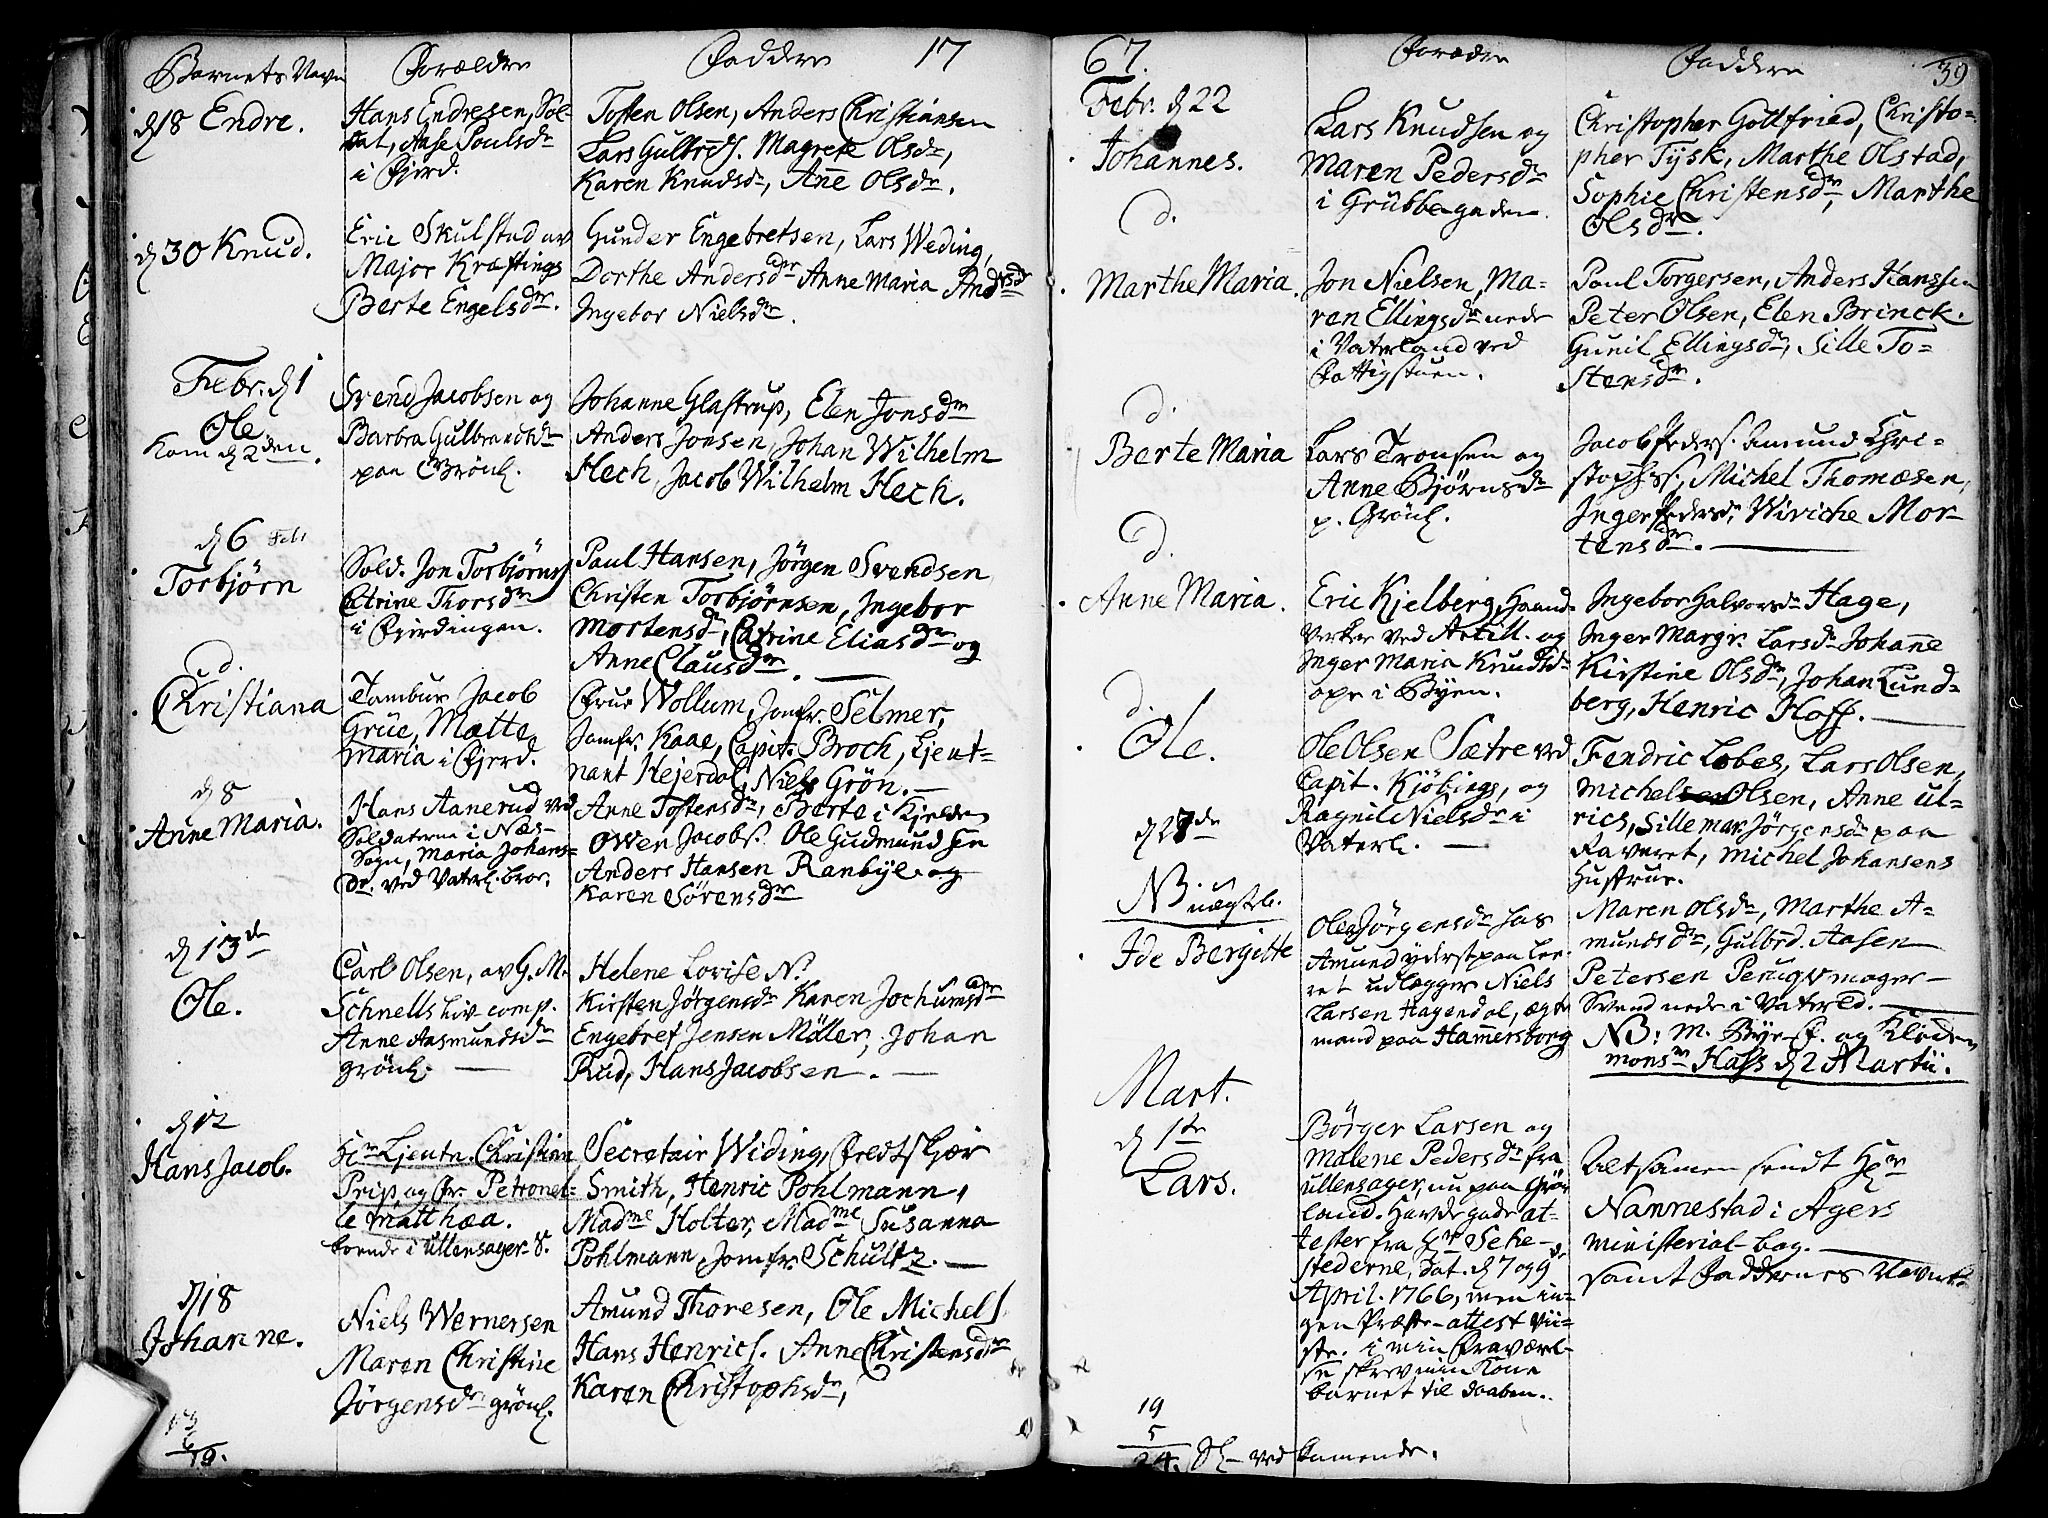 Barnets Navn
Forældre
Faddere
17
d 18 Endre.
Hans Endresen, Sol-
dat, Aase Poulsdr
i Fjerd.
Tosten Olsen, Anders Christiansen
Lars Gulbrds. Magrete Olsdr,
Karen Knudsdr, Anne Olsdr.
d 30 Knud.
Eric Skulstad av
Major Kraftings
Berte Engelsdr.
Gunder Engebretsen, Lars Weding,
Dorthe Andersdr Anne Maria Andersdr
Ingebor Nielsdr.
Febr. d 1
Ole
Kom d 2den.
Svend Jacobsen og
Barbra Gulbrandsdr
paa Grönl.
Johanne Glastrup, Elen Jonsdr
Anders Jonsen, Johan Wilhelm
Hech, Jacob Wilhelm Hech.
d 6 Feb
Torbjörn
Sold. Jon Torbjörns
Catrine Thorsdr
i Fjerdingen.
Paul Hansen, Jörgen Svendsen
Christen Torbjörnsen, Ingebor
Mortensdr, Catrine Eliasdr og
Anne Clausdr.
d.
Christiana
Tambur Jacob
Grüe, Mette
Maria i Fjerd.
Frue Wollum, Jomfr. Selmer,
Jomfr. Kaae, Capit. Broch, Ljent-
nant Hejerdal, Niels Grön.
d 8
Anne Maria.
Hans Aanerud ved
Soldaterne i Næs-
Sogn, Maria Johans-
dr. ved Vaterl. broe.
Anne Tostensdr, Berte i Kjelden
Owen Jacobs. Ole Gudmundsen
Anders Hansen Ranbye og
Karen Sörensdr
d 13de
Ole.
Carl Olsen, av G. M.
Schnells liv-comp.
Anne Aasmundsdr
grönl.
Helene Lovise N.
Kirsten Jörgensdr Karen Jochumsdr
Engebret Jensen Möller, Johan
Rud, Hans Jacobsen.
d 12
Hans Jacob.
Hr Ljeutn. Christian
Prip, og Fr. Petronel-
le Matthæa.
boende i Ullensager S.
Secretair Widing, Fredt Skjær
Smith, Henric Pohlmann,
Madme Holter, Madme Susanna
Pohlmann, Jomfr. Schultz.
d 18
Johanne.
Niels Wernersen
Maren Christine
Jörgensdr grönl.
Amund Thoresen, Ole Michels
Hans Henrics. Anne Christensdr
Karen Christophsdr,
13
6
19.
67.
Forældre
Faddere
39
Febr. d 22
Johannes.
Lars Knudsen og
Maren Pedersdr
i Grübbegaden.
Christopher Gottfried, Christo-
pher Tysk, Marthe Olstad,
Sophie Christensdr, Marthe
Olsdr.
d.
Marthe Maria.
Jon Nielsen, Ma-
ren Ellingsdr nede
i Vaterland ved
Fattigstuen.
Paul Torgersen, Anders Hanssen
Peter Olsen, Elen Brinck.
Gunil Ellingsdr, Sille To-
stensdr.
d.
Berte Maria
Lars Tronsen og
Anne Björnsdr
p. Grönl.
Jacob Peders. Amund Chri-
stophs., Michel Thomæsen,
Inger Pedersdr, Wiviche Mor-
tensdr.
d.
Anne Maria.
Eric Kjelberg, Haand-
verker ved Artill. og
Inger Maria Knudsdr
ope i Byen.
Ingebor Halvorsdr Hage,
Inger Margr. Larsdr Johanne
Kirstine Olsdr, Johan Lund-
berg, Henric Hoff.
d.
Ole.
Ole Olsen Sætre ved
Capit. Kjöbings, og
Ragnil Nielsdr i
Vaterl.
Fendric Lobes, Lars Olsen,
Michel Olsen, Anne Ul-
rics, Sille Mar. Jörgensdr paa
Raveret, Michel Johansens
Hustrue.
d 27de
NB. uægtel.
Ide Bergitte
Ole Jörgensdr hos
Amund yderst paa Ler-
ret udlægger Niels
Larsen Hagendal, ægte
mand paa Hammersborg
Maren Olsdr, Marthe A-
mundsdr, Gulbrd. Aasen
Petersen Peruqvmager
Svend nede i Vaterld.
NB: M. Bye-F. og Kloken
monsr Hass d 2 Martii.
Mart.
d 1te
Lars.
Börger Larsen og
Malene Pedersdr fra
Ullensager, nu paa Grön
land. Havde gode at-
tester fra Hr Sehe-
stederne, dat. d 7 og 9de
April. 1766, men in-
gen Præste-attest vii-
ste. i min Fraværel-
se skrev min Kone
barnet til daaben.
Altsamen sendt Hr
Nannestad i Agers
ministerial-bog.
samt Faddernes Navne
19
5
24. ved